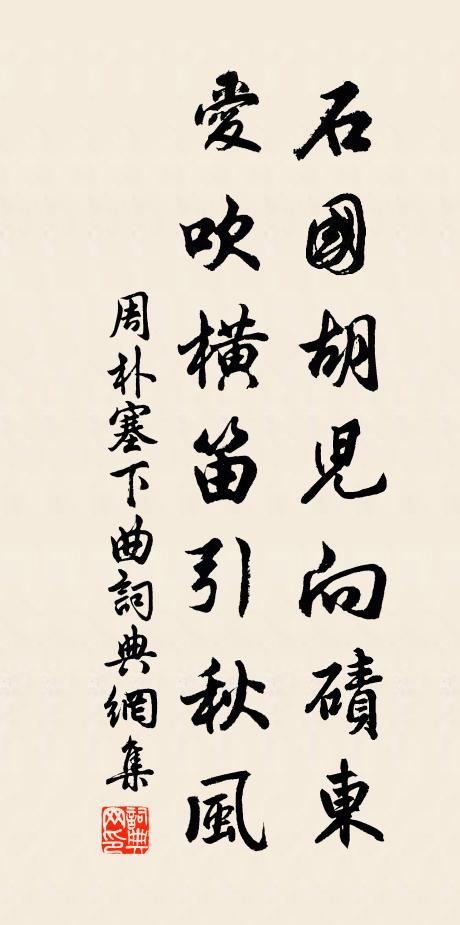 石國胡児向磧東
愛吹横笛引秋風
周朴塞下曲詞典網集
詞典
网印